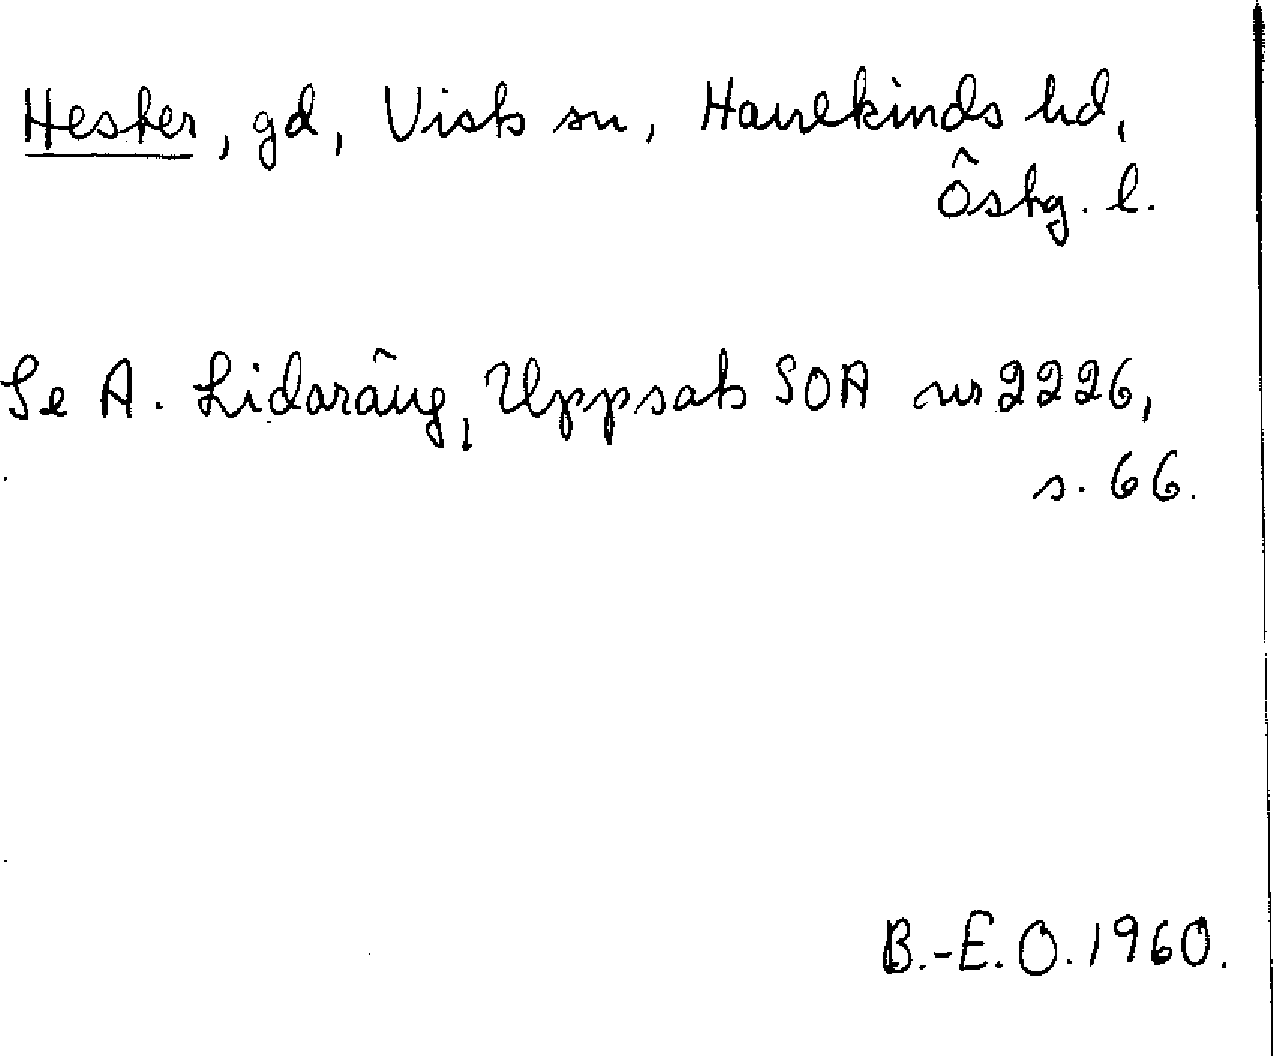 Hester, gd, Vists sn, Hanekinds hd,
Östg. l.
Se A. Lidaräng, Uppsats SOA nr 2226,
s. 66.
B.-E.O. 1960.